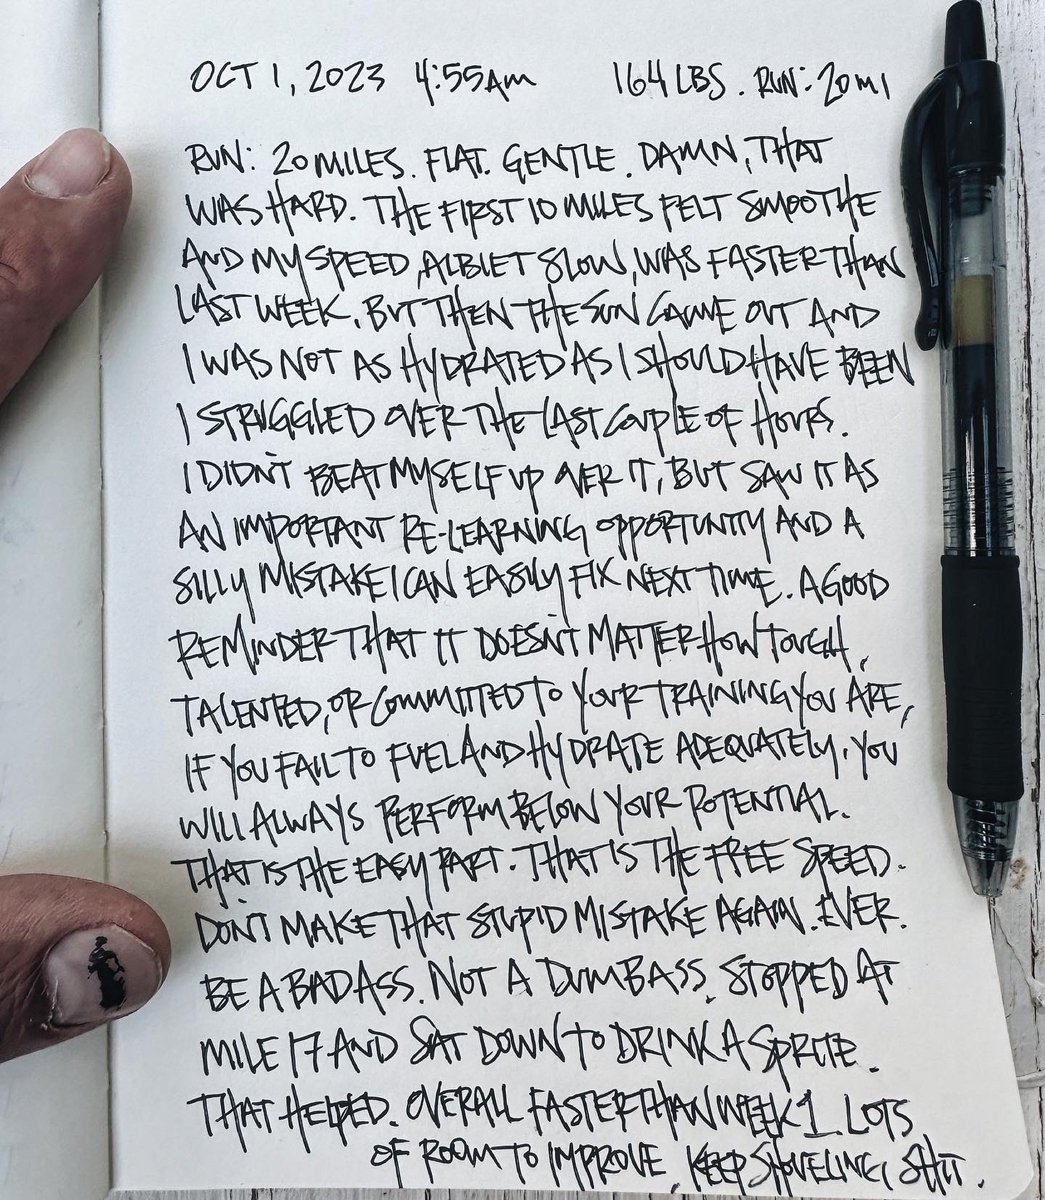 OCT 1, 2023 4:55AM 164 LBS. RUN: 20MI
RUN: 20 MILES. FLAT. GENTLE. DAMN, THAT
WAS HARD. THE FIRST 10 MILES FELT SMOOTHE
AND MY SPEED, ALBIET SLOW, WAS FASTER THAN
LAST WEEK. BUT THEN THE SUN CAME OUT AND
I WAS NOT AS HYDRATED AS I SHOULD HAVE BEEN
I STRUGGLED OVER THE LAST COUPLE OF HOURS.
I DIDN'T BEAT MYSELF UP OVER IT, BUT SAW IT AS
AN IMPORTANT RE-LEARNING OPPORTUNITY AND A
SILLY MISTAKE I CAN EASILY FIX NEXT TIME. A GOOD
REMINDER THAT IT DOESN'T MATTER HOW TOUGH,
TALENTED, OR COMMITTED TO YOUR TRAINING YOU ARE,
IF YOU FAIL TO FUEL AND HYDRATE ADEQUATELY, YOU
WILL ALWAYS PERFORM BELOW YOUR POTENTIAL.
THAT IS THE EASY PART. THAT IS THE FREE SPEED.
DON'T MAKE THAT STUPID MISTAKE AGAIN. EVER.
BE A BADASS. NOT A DUMBASS. STOPPED AT
MILE 17 AND SAT DOWN TO DRINK A SPRITE.
THAT HELPED. OVERALL FASTER THAN WEEK 1. LOTS
OF ROOM TO IMPROVE. KEEP SHOVELING SHIT.